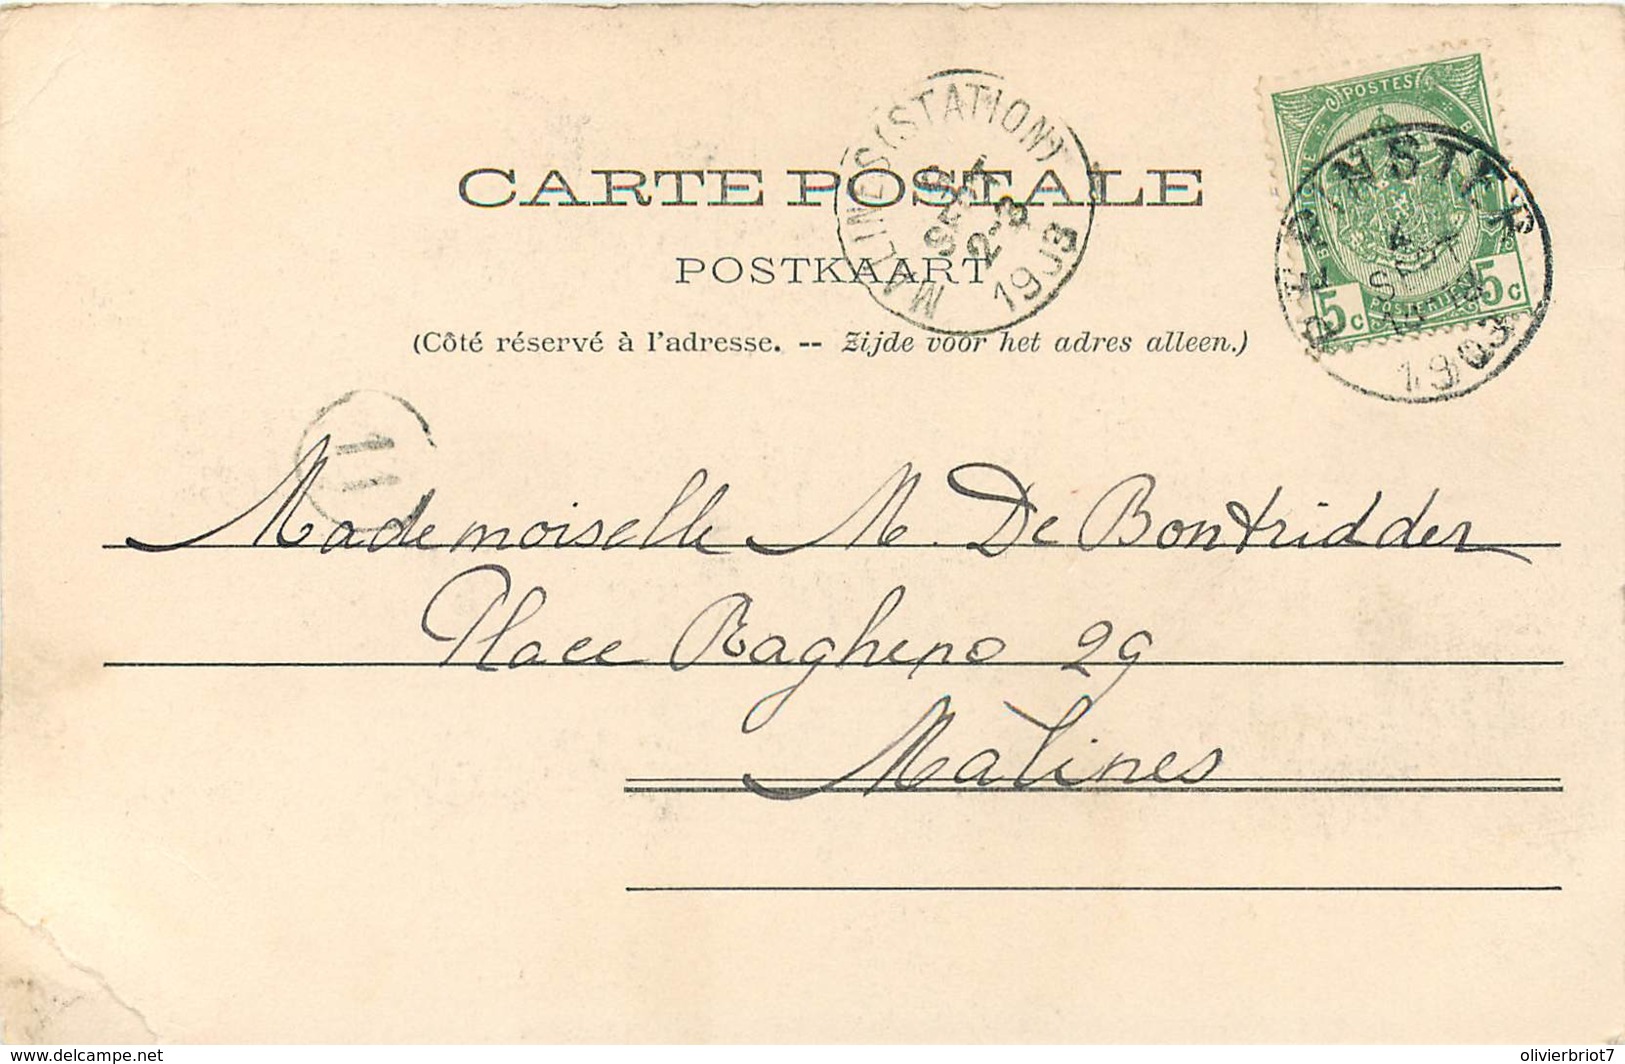 CARTE POSTALE
POSTKAART
(Côté réservé à l'adresse. -- Zijde voor het adres alleen.)
MALINES (STATION)
5
SEPT
2-3
1903
POSTES
BELGIQUE
5 c
5 c
PEPINSTER
4
SEPT
1903
11
Mademoiselle M. De Bontridder
Place Ragheno 29
Malines
www.delcampe.net
olivierbriot7